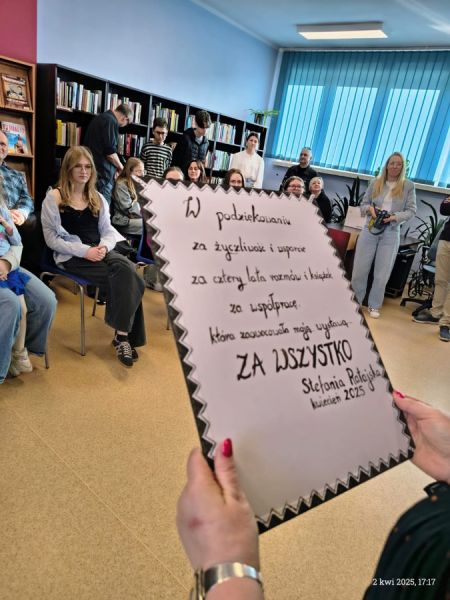 W podziękowaniu
za życzliwość i wsparcie
za cztery lata rozmów i książek
za współpracę,
która zaowocowała moją wystawą.
ZA WSZYSTKO
Stefania Ratajska
kwiecień 2025
2 kwi 2025, 17:17